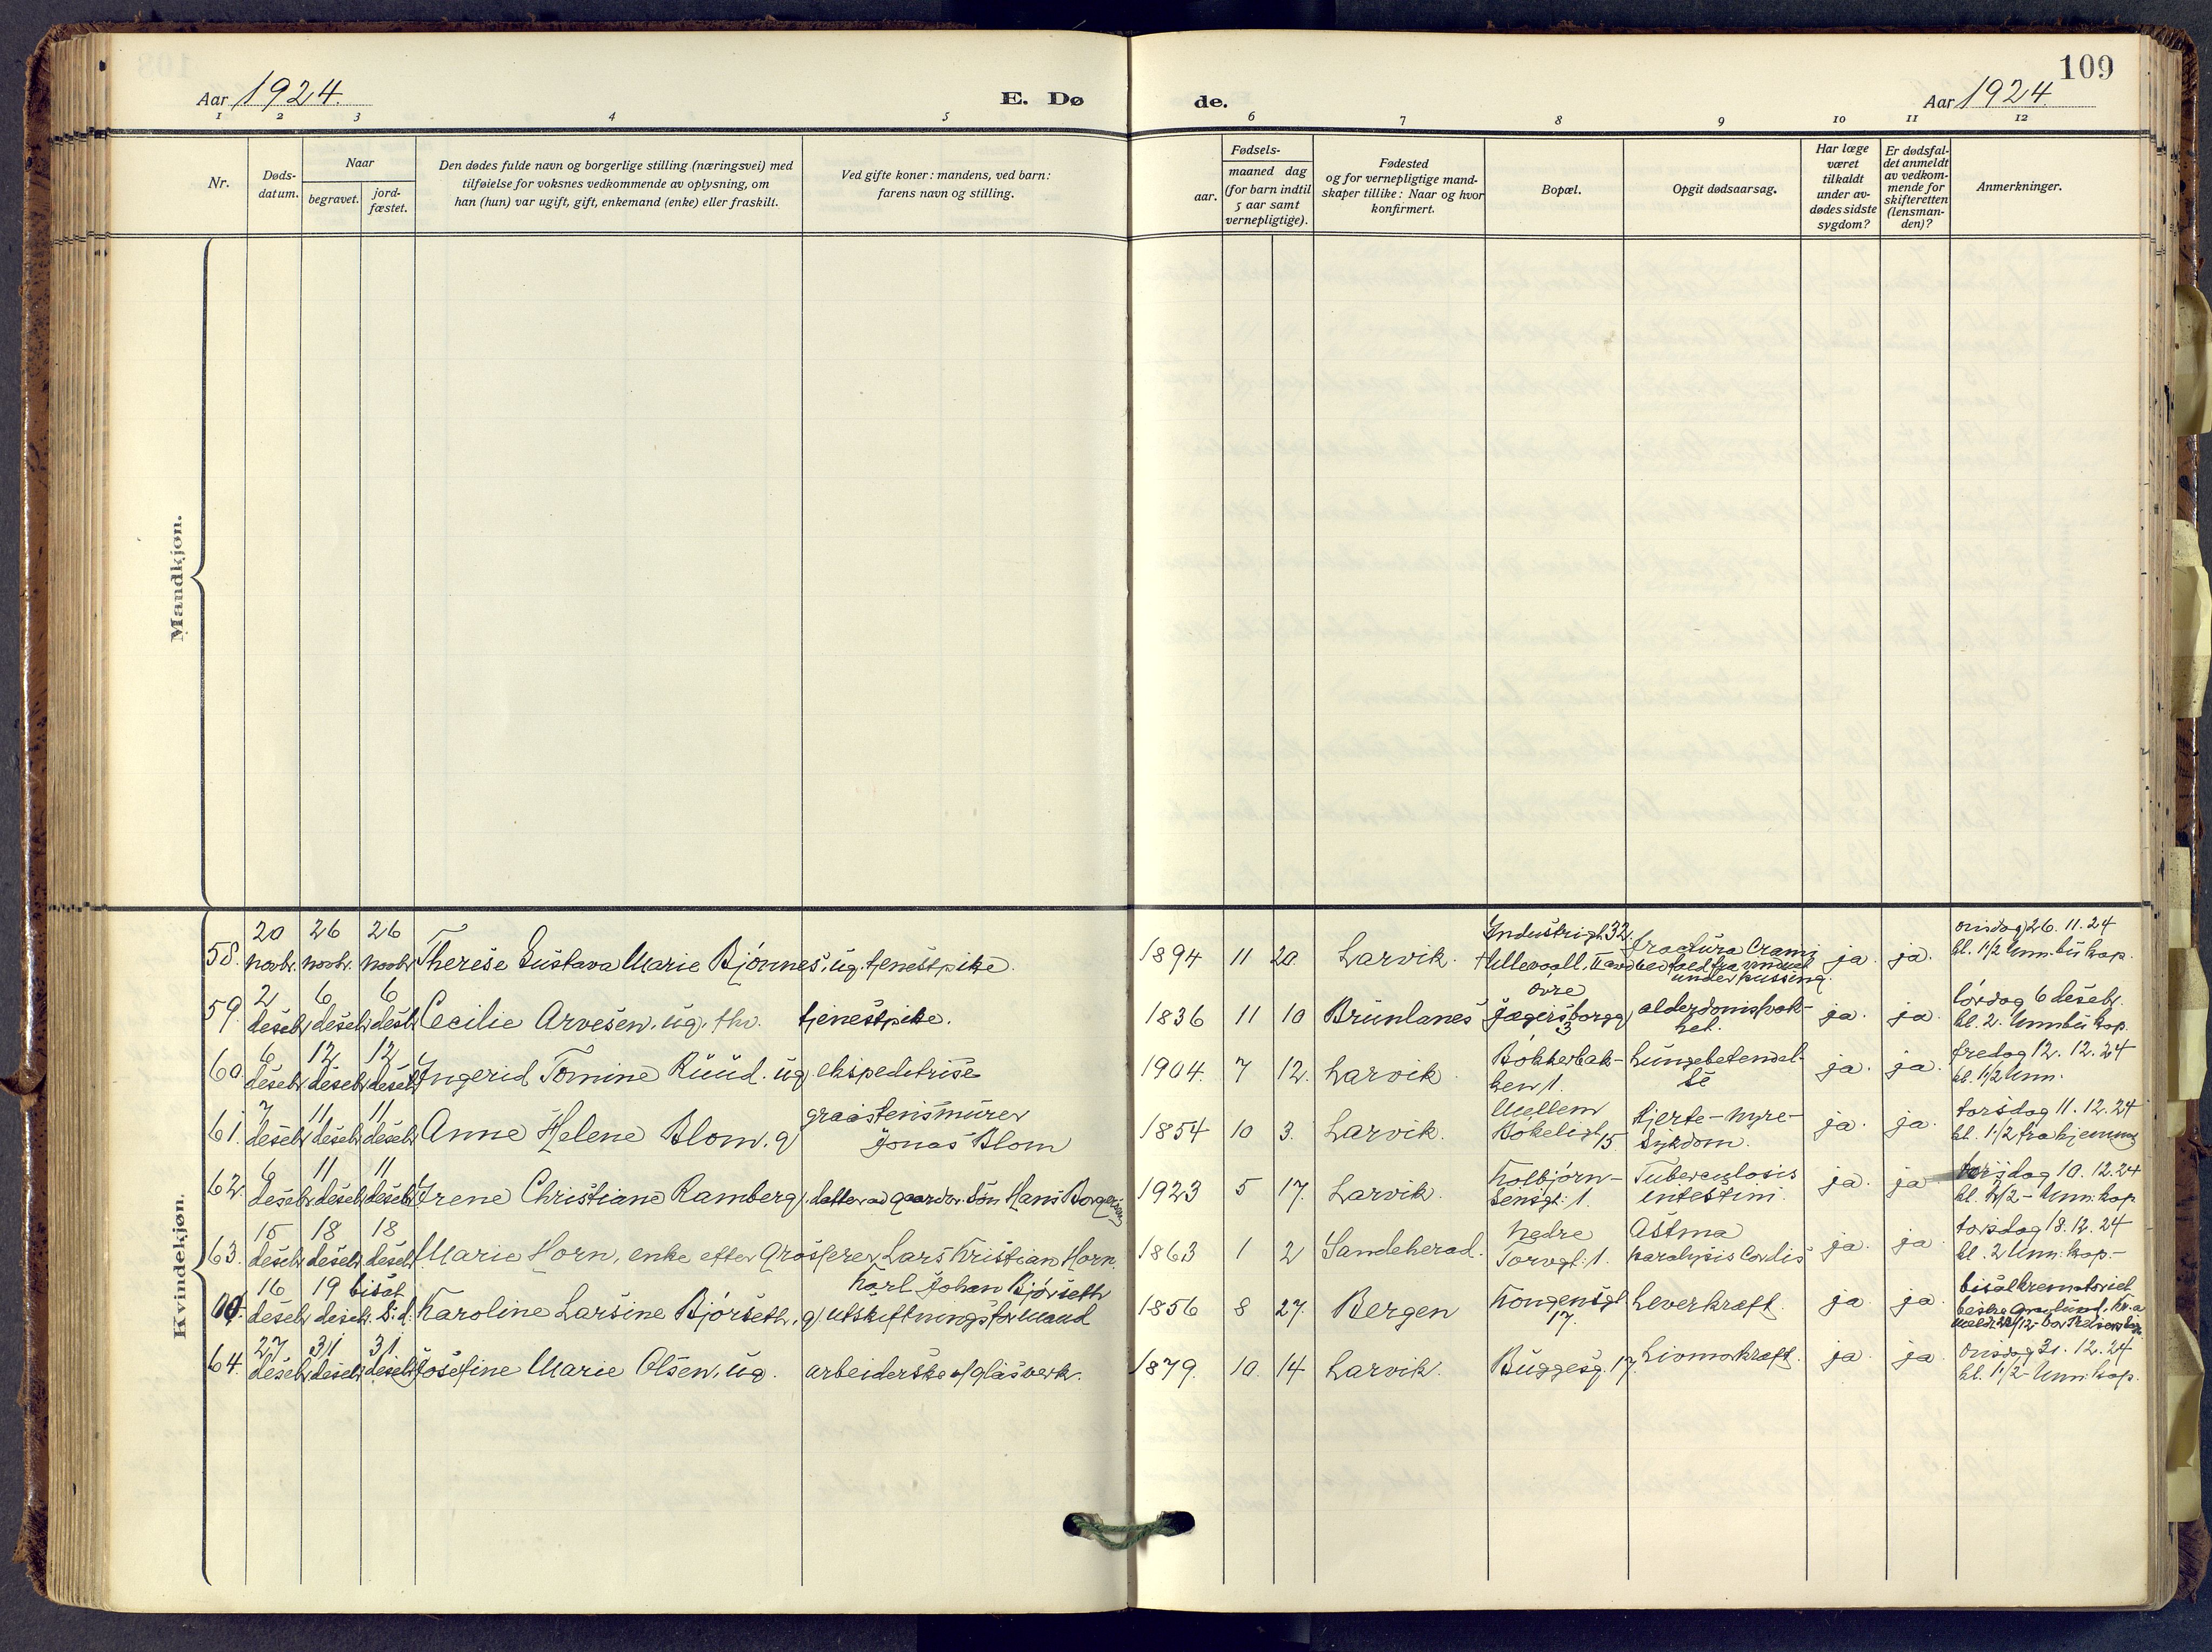 109
Aar 1924.
E. Dø
de.
Aar 1924.
1 2 3 4 5 6 7 8 9 10 11 12
Nr.
Døds-
datum.
Naar
begravet.
jord-
fæstet.
Den dødes fulde navn og borgerlige stilling (næringsvei) med
tilføielse for voksnes vedkommende av oplysning, om
han (hun) var ugift, gift, enkemand (enke) eller fraskilt.
Ved gifte koner: mandens, ved barn:
farens navn og stilling.
Fødsels-
aar.
maaned dag
(for barn indtil
5 aar samt
vernepligtige).
Fødested
og for vernepligtige mand-
skaper tillike: Naar og hvor
konfirmert.
Bopæl.
Opgit dødsaarsag.
Har læge
været
tilkaldt
under av-
dødes sidste
sygdom?
Er dødsfal-
det anmeldt
av vedkom-
mende for
skifteretten
(lensman-
den)?
Anmerkninger.
Mandkjøn.
Kvindekjøn.
58. 20 novbr. 26 novbr. 26 novbr. Therese Gustava Marie Bjønnes, ug. tjenestpike. 1894 11 20 Larvik. Industrigt. 32 Ullevaall. fractura Cranii ved fald fra vinduet under pussing. ja. ja. onsdag 26. 11. 24
kl. 1 1/2
59. 2 desebr. 6 desebr. 6 desbr. Cecilie Arvesen. ug. fhv. tjenestpike. 1836 11 10 Brunlanes øvre Jægersborgg 3 alderdomssvak-
het. ja. ja. lørdag 6 desebr.
kl. 2.
60. 6 desebr. 12 desebr. 12 desebr. Ingerid Tomine Ruud. ug. ekspeditrise 1904. 7 12. Larvik. Bøkkerbak-
ken 1. Lungebetendel-
se ja. ja. fredag 12. 12. 24
kl. 1 1/2
61. 7 desebr. 11 desebr. 11 desebr. Anne Helene Blom. g graastensmurer
Jonas Blom 1854 10 3. Larvik. Mellem
Bøkeligt. 15 Hjerte-Nyre-
sykdom. ja. ja. torsdag 11. 12. 24
kl. 1 1/2 fra hjemmet
62. 6 desebr. 11 desebr. 11 desebr. Irene Christiane Ramberg, datter av gaardbr. søn Hans Borgersen 1923 5 17. Larvik. Kolbjørn-
sensgt. 1. Tuberculosis
intestini. ja. ja 10. 12. 24
63. 15 desebr. 18 desebr. 18 desebr. Marie Horn, enke efter grosserer Lars Kristian Horn. 1863 1 2 Sandeherad. nedre
Torvgt. 1. Astma
paralysis Cordis ja. ja. torsdag 18. 12. 24
kl. 2
16 desebr. 19 desebr. bisat s.d. Karoline Larsine Bjørseth, g. Karl Johan Bjørseth
utskiftningsformand 1856 8 27. Bergen Kongensgt
17. Leverkræft. ja ja. bisat krematoriet
64. 27 desebr. 31 desebr. 31 desebr. Josefine Marie Olsen, ug. arbeiderske v/glasverk. 1879. 10. 14 Larvik. Buggesg. 17. ja ja. onsdag 31. 12. 24
kl. 1 1/2